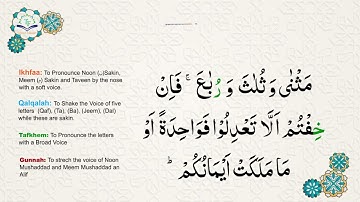 Ikhfaa: To Pronounce Noon (ن)Sakin,
Meem (م) Sakin and Taveen by the nose
with a soft voice.
Qalqalah: To Shake the Voice of five
letters (Qaf), (Ta), (Ba), (Jeem), (Dal)
while these are sakin.
Tafkhem: To Pronounce the letters
with a Broad Voice
Gunnah: To strech the voice of Noon
Mushaddad and Meem Mushaddad an
Alif
مَثْنٰى وَ ثُلٰثَ وَ رُبٰعَ ۚ فَاِنْ
خِفْتُمْ اَلَّا تَعْدِلُوْا فَوَاحِدَةً اَوْ
مَا مَلَكَتْ اَيْمَانُكُمْ ؕ